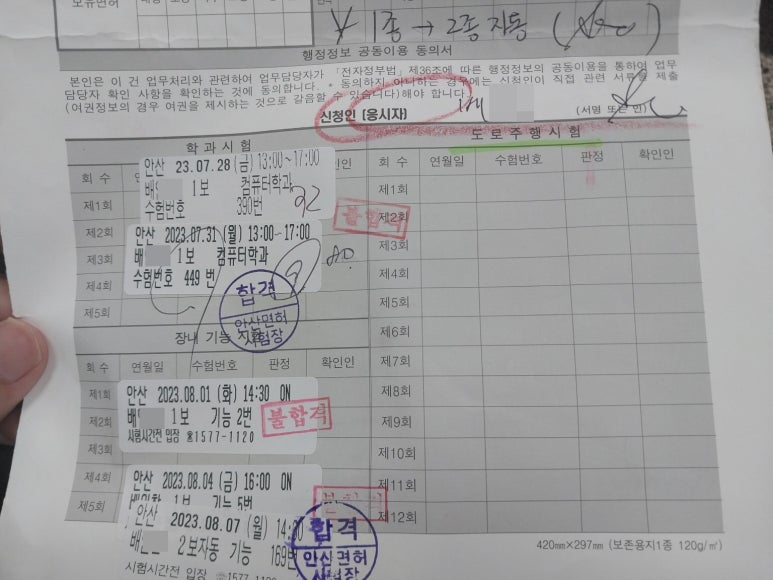 보유면허
1종 → 2종 자동
행정정보 공동이용 동의서
본인은 이 건 업무처리와 관련하여 업무담당자가 「전자정부법」 제36조에 따른 행정정보의 공동이용을 통하여 업무
담당자 확인 사항을 확인하는 것에 동의합니다. * 동의하지 아니하는 경우에는 신청인이 직접 관련 서류를 제출
(여권정보의 경우 여권을 제시하는 것으로 갈음할 수 있습니다)해야 합니다.
신청인 (응시자)
(서명 또는 인)
학과시험
회 수
안산 23.07.28(금) 13:00~17:00
배 1보 컴퓨터학과
수험번호 390번
인인
제1회
92
불합격
제2회
안산 2023.07.31(월) 13:00~17:00
제3회
배 1보 컴퓨터학과
제4회
수험번호 449 번
제5회
합격
안산면허
시험장
장내 기능
회 수 연월일 수험번호 판정 확인인
제1회
안산 2023.08.01 (화) 14:30 ON
제2회
배 1보 기능 2번
불합격
시험시간전 입장 ☎1577-1120
제3회
제4회
안산 2023.08.04 (금) 16:00 ON
1보 기능 5번
제5회
안산 2023.08.07 (월)
배 2보자동 기능 169번
시험시간전 입장 ☎1577-1120
합격
안산면허
시험장
도로주행시험
회 수 연월일 수험번호 판정 확인인
제1회
제2회
제3회
제4회
제5회
제6회
제7회
제8회
제9회
제10회
제11회
제12회
420㎜×297㎜ (보존용지1종 120g/㎡)